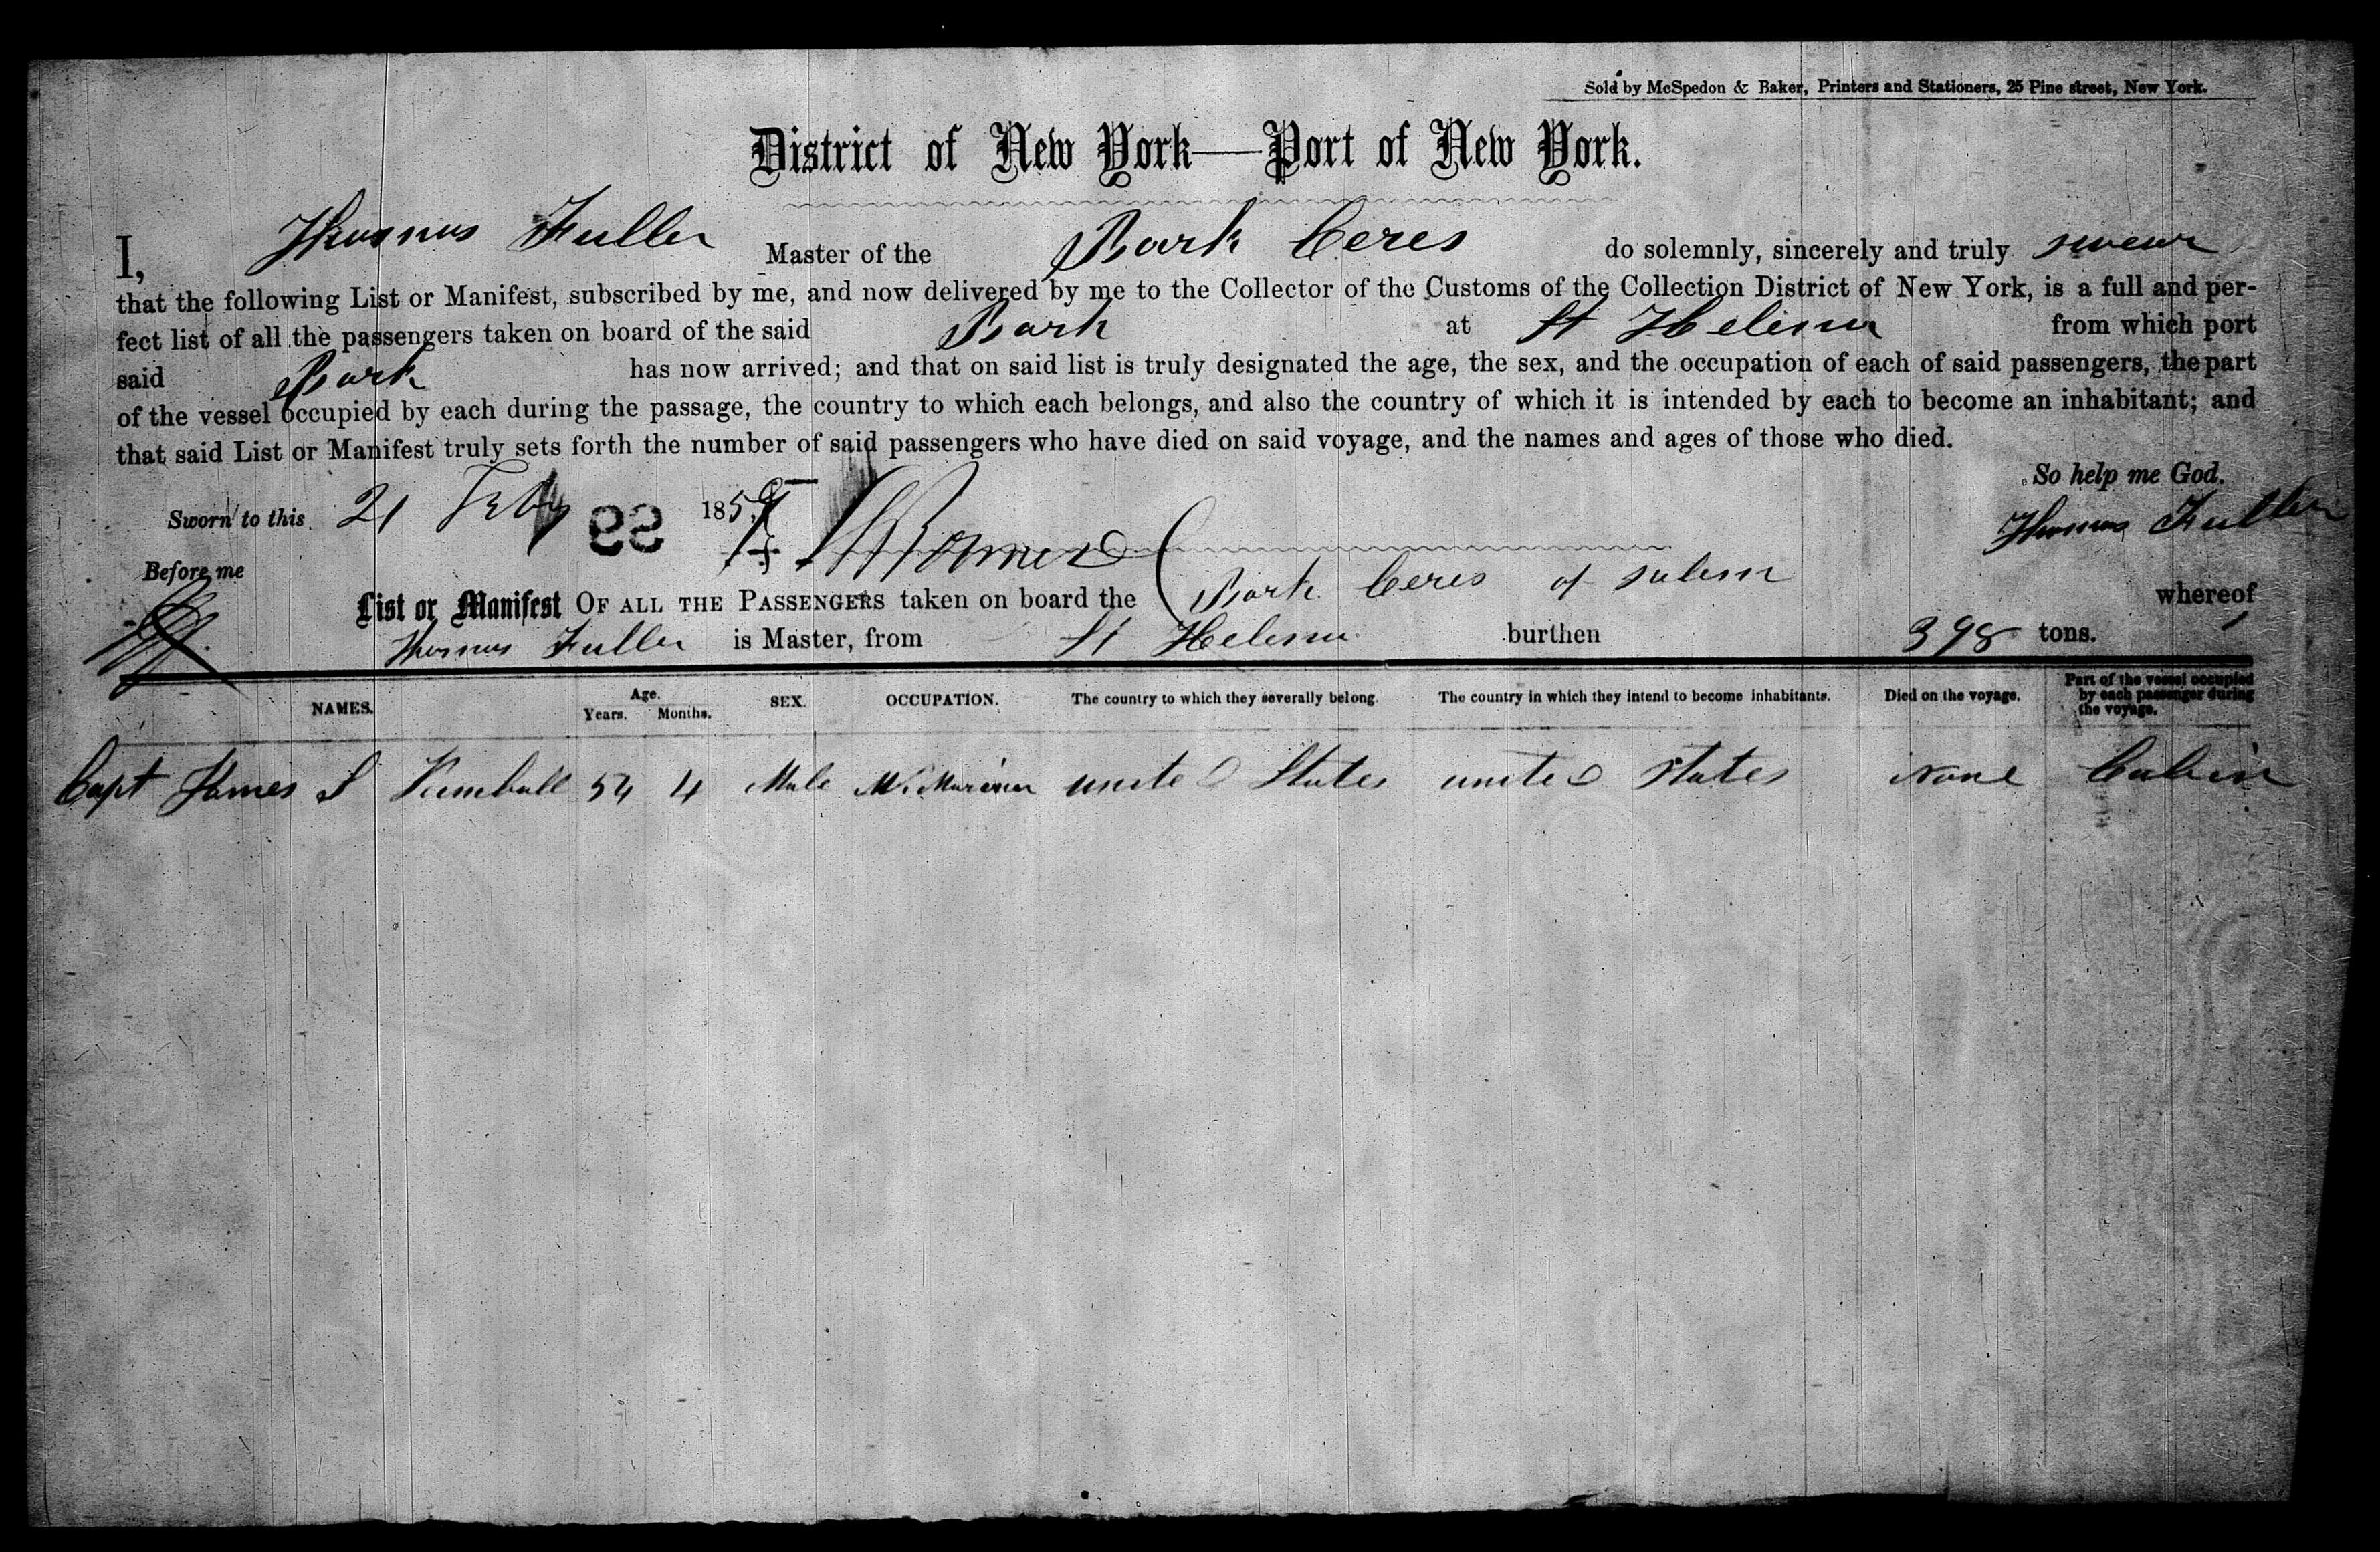 Sold by McSpedon & Baker, Printers and Stationers, 25 Pine street, New York.
District of New York—Port of New York.
I, Thomas Fuller Master of the Bark Ceres do solemnly, sincerely and truly swear
that the following List or Manifest, subscribed by me, and now delivered by me to the Collector of the Customs of the Collection District of New York, is a full and per-
fect list of all the passengers taken on board of the said Bark at St Helena from which port
said Bark has now arrived; and that on said list is truly designated the age, the sex, and the occupation of each of said passengers, the part
of the vessel occupied by each during the passage, the country to which each belongs, and also the country of which it is intended by each to become an inhabitant; and
that said List or Manifest truly sets forth the number of said passengers who have died on said voyage, and the names and ages of those who died.
So help me God.
Sworn to this 21 Feby 185 Thomas Fuller
Before me
List or Manifest OF ALL THE PASSENGERS taken on board the Bark Ceres of Salem whereof
Thomas Fuller is Master, from St Helena burthen 398 tons.
NAMES. Age. Years. Months. SEX. OCCUPATION. The country to which they severally belong. The country in which they intend to become inhabitants. Died on the voyage. Part of the vessel occupied by each passenger during the voyage.
Capt James S Kimball 54 4 Male M. Mariner united States united States None Cabin